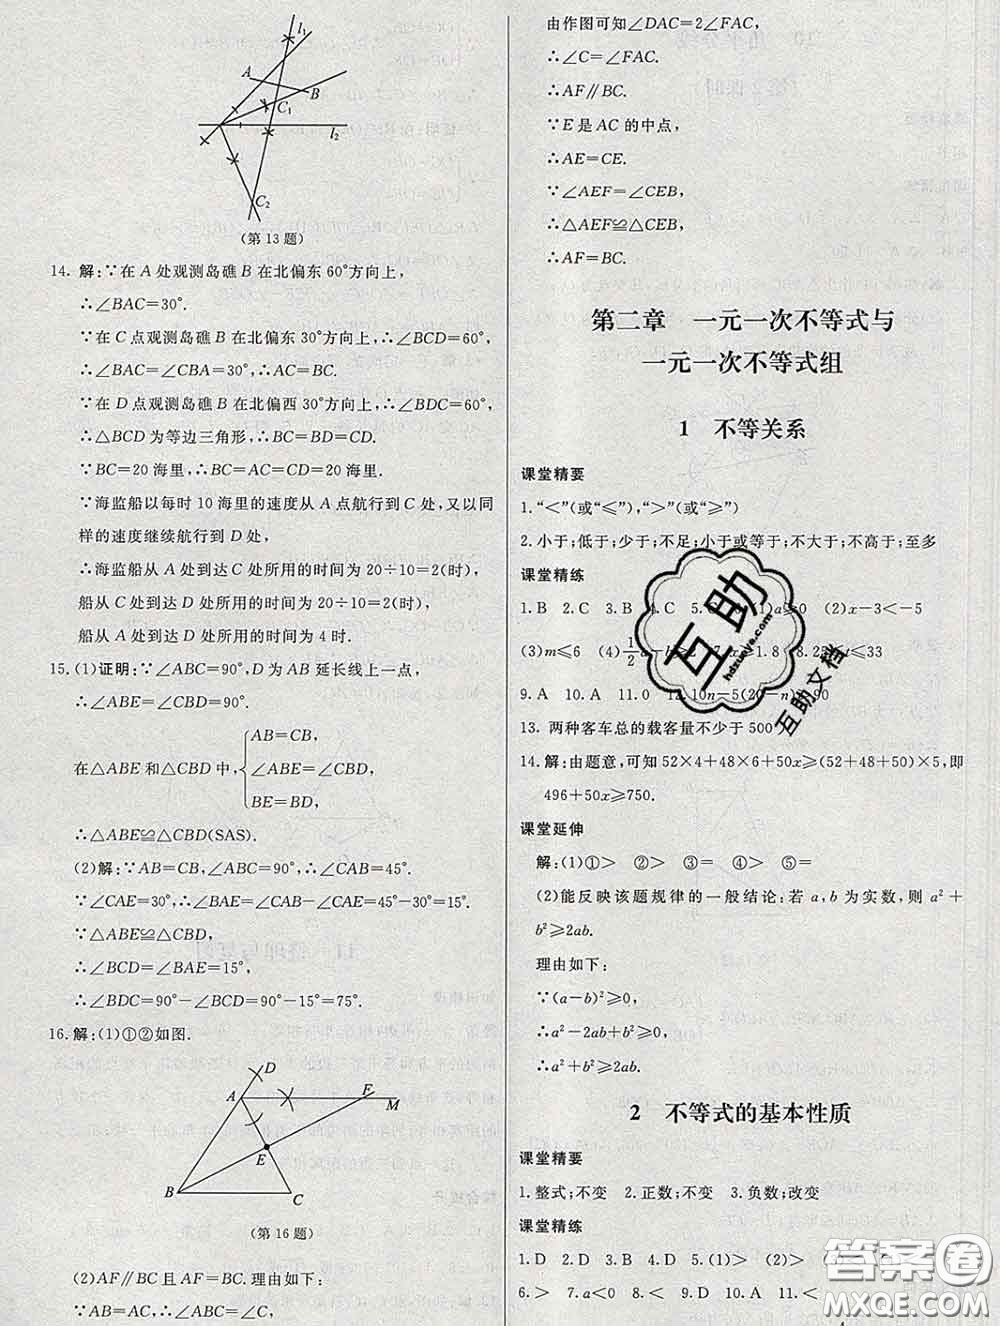 l₁
A
B
C₁
l₂
C₂
(第13题)
14. 解:∵在A处观测岛礁B在北偏东60°方向上,
∴∠BAC=30°.
∵在C点观测岛礁B在北偏东30°方向上,∴∠BCD=60°,
∴∠BAC=∠CBA=30°,∴AC=BC.
∵在D点观测岛礁B在北偏西30°方向上,∴∠BDC=60°,
∴△BCD为等边三角形,∴BC=BD=CD.
∵BC=20海里,∴BC=AC=CD=20海里.
∵海监船以每时10海里的速度从A点航行到C处,又以同
样的速度继续航行到D处,
∴海监船从A处到达C处所用的时间为20÷10=2(时),
船从C处到达D处所用的时间为20÷10=2(时),
船从A处到达D处所用的时间为4时.
15. (1)证明:∵∠ABC=90°,D为AB延长线上一点,
∴∠ABE=∠CBD=90°.
在△ABE和△CBD中, { AB=CB,
∠ABE=∠CBD,
BE=BD,
∴△ABE≌△CBD(SAS).
(2)解:∵AB=CB,∠ABC=90°,∴∠CAB=45°.
∵∠CAE=30°,∴∠BAE=∠CAB-∠CAE=45°-30°=15°.
∵△ABE≌△CBD,
∴∠BCD=∠BAE=15°,
∴∠BDC=90°-∠BCD=90°-15°=75°.
16. 解:(1)①②如图.
D
A
F
M
E
B
C
(第16题)
(2)AF∥BC且AF=BC.理由如下:
∵AB=AC,∴∠ABC=∠C,
由作图可知∠DAC=2∠FAC,
∴∠C=∠FAC.
∴AF∥BC.
∵E是AC的中点,
∴AE=CE.
∵∠AEF=∠CEB,
∴△AEF≌△CEB,
∴AF=BC.
第二章 一元一次不等式与
一元一次不等式组
1 不等关系
课堂精要
1. “<”(或“≤”),“>”(或“≥”)
2. 小于;低于;少于;不足;小于或等于;不大于;不高于;至多
课堂精练
1. B 2. C 3. B 4. C 5. (1)a≥0 (2)x-3<-5
(3)m≤6 (4)1/2 1.8 8. 25 t≤33
9. A 10. A 11. 0 12. 10n-5(20 90
13. 两种客车总的载客量不少于500
14. 解:由题意,可知52×4+48×6+50x≥(52+48+50)×5,即
496+50x≥750.
课堂延伸
解:(1)①> ②> ③= ④> ⑤=
(2)能反映该题规律的一般结论:若a,b为实数,则a²+
b²≥2ab.
理由如下:
∵(a-b)²≥0,
∴a²-2ab+b²≥0,
∴a²+b²≥2ab.
2 不等式的基本性质
课堂精要
1. 整式;不变 2. 正数;不变 3. 负数;改变
课堂精练
1. D 2. D 3. B 4. D 5. (1)> (2)>
6. > 7. a<0 8. < 9. > 10. D 11. A 12.
互助
hdzuoye.com
互助文档
答案圈
MXQE.COM